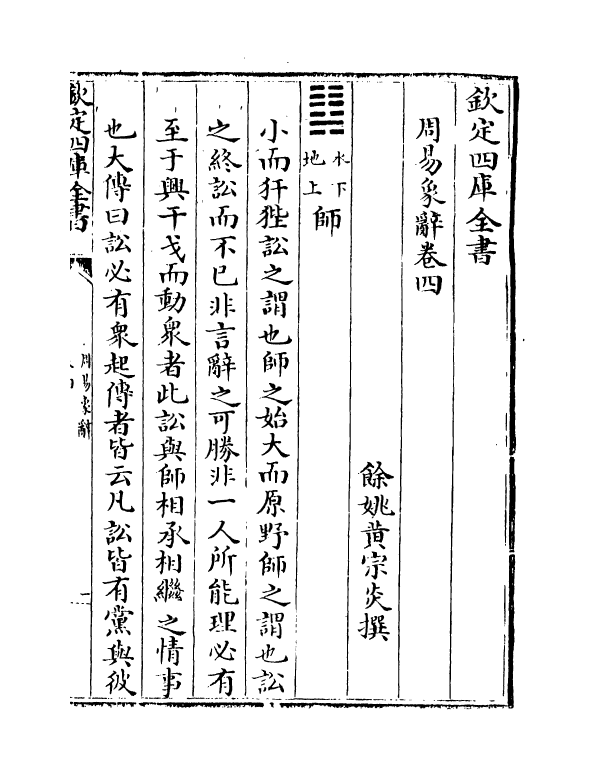 欽定四庫全書
周易象辭卷四
餘姚黃宗炎撰
䷆水下地上師
小而犴狴訟之謂也師之始大而原野師之謂也訟
之終訟而不已非言辭之可勝非一人所能理必有
至于興干戈而動衆者此訟與師相承相繼之情事
也大傳曰訟必有衆起傳者皆云凡訟皆有黨與彼
欽定四庫全書
周易象辭
一